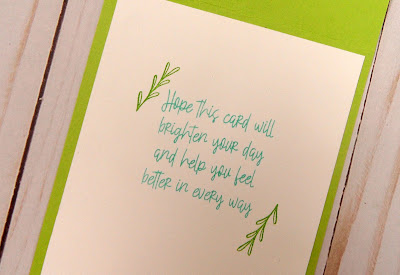 Hope this card will
brighten your day
and help you feel
better in every way